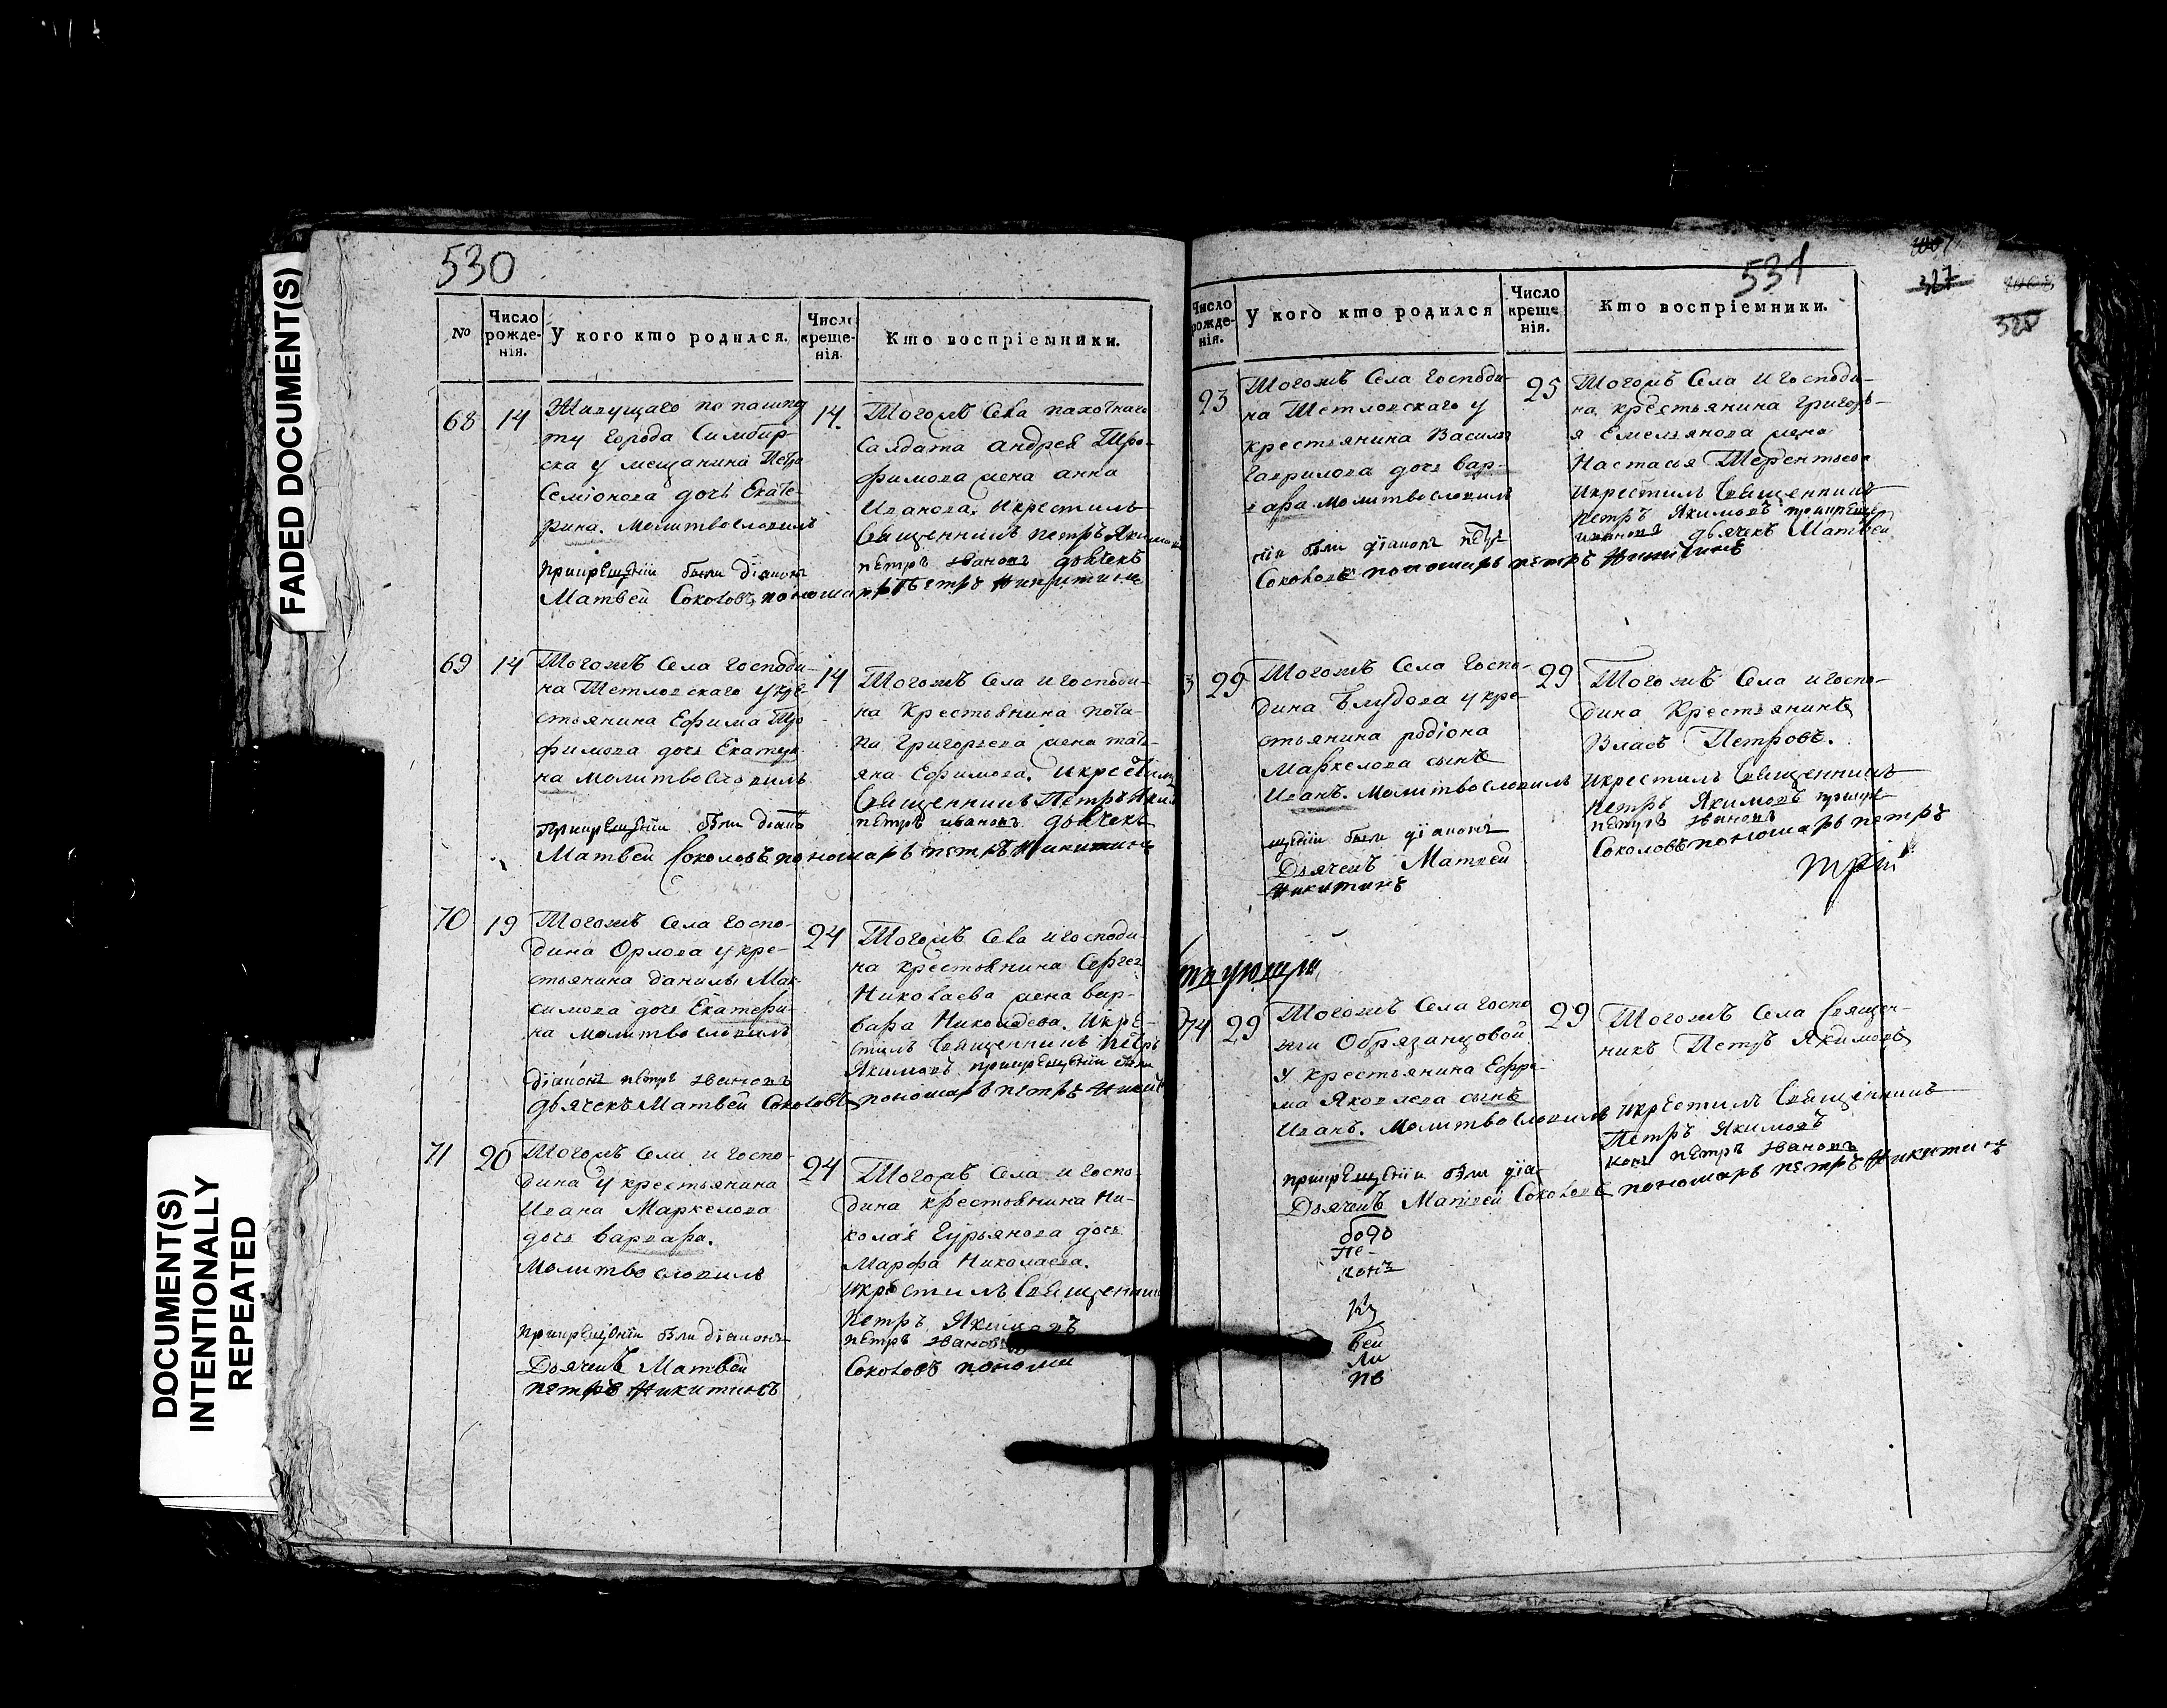 530
№
Число рожде-нія.
У кого кто родился.
Число креще-нія.
Кто воспріемники.
68
14
Живущаго по пашпор
ту Города Симбир
ска у мещанина Петра
Семіонова дочь Екате-
рина. Молитвословилъ
прикрещеніи были діаконъ
Матвей Соколовъ пономарь Петръ Никитинъ
14.
Тогожъ Села пахотнаго
Салдата Андрея Тро-
фимова жена анна
Иванова. Икрестилъ
Священникъ петръ Якимовъ
петръ ивановъ дьячекъ
69
14
Тогожъ Села Господи-
на Петловскаго укре-
стьянина Ефима Тро
фимова дочь Екатери
на молитвословилъ
Прикрещеніи были діаконъ
Матвей Соколовъ пономарь петръ Никитинъ
14
Тогожъ Села игосподи-
на Крестьянина пота-
па Григорьева жена тать-
яна Ефимова. икрестилъ
Священникъ Петръ Якимовъ
петръ ивановъ дьячекъ
70
19
Тогожъ Села Госпо-
дина Орлова укре-
стьянина данилы Мак-
симова дочь Екатери-
на молитвословилъ
діаконъ петръ ивановъ
дьячекъ Матвей Соколовъ пономарь петръ Никит
24
Тогожъ Села игосподи
на крестьянина Сергея
Николаева жена вар-
вара Николаева. Икре-
стилъ Священникъ петръ
Якимовъ прикрещеніи были
71
20
Тогожъ Села и Госпо-
дина у крестьянина
Ивана Маркелова
дочь варвара.
Молитвословилъ
прикрещеніи были діаконъ
Дьячекъ Матвей
петръ Никитинъ
24
Тогожъ Села и госпо-
дина крестьянина Ни-
колая Гурьянова дочь
Марфа Николаева.
икрестилъ Священникъ
Петръ Якимовъ
петръ ивановъ
Соколовъ пономарь
531
327
328
Число рожде-нія.
У кого кто родился
Число креще нія.
Кто воспріемники.
23
Тогожъ Села Господи-
на Петловскаго у
крестьянина Василья
Гаврилова дочь вар-
вара молитвословилъ
ніи были діаконъ петръ
Соколовъ пономарь петръ Никитинъ
25
Тогожъ Села Игосподи-
на крестьянина Григорь-
я Емельянова жена
Настасья Терентьева
Икрестилъ Священникъ
Петръ Якимовъ прикреще
ивановъ дьячекъ Матвей
3
29
Тогожъ Села Госпо-
дина Блудова укре-
стьянина родіона
Маркелова сынъ
Иванъ. Молитвословилъ
щеніи были діаконъ
Дьячекъ Матвей
Никитинъ
29
Тогожъ Села игоспо-
дина Крестьянинъ
Власъ Петровъ.
икрестилъ Священникъ
петръ Якимовъ прикре
петръ ивановъ
Соколовъ пономарь петръ
74
29
Тогожъ Села Госпо
жи Обрязанцовой
у крестьянина Ефре-
ма Яковлева сынъ
Иванъ. Молитвословилъ
прикрещеніи были діа
Дьячекъ Матвей Соколовъ пономарь петръ Никитинъ
29
Тогожъ Села Священ-
никъ Петръ Якимовъ
икрестилъ Священникъ
Петръ Якимовъ
конъ петръ ивановъ
конъ
вей
FADED DOCUMENT(S)
DOCUMENT(S)
INTENTIONALLY
REPEATED